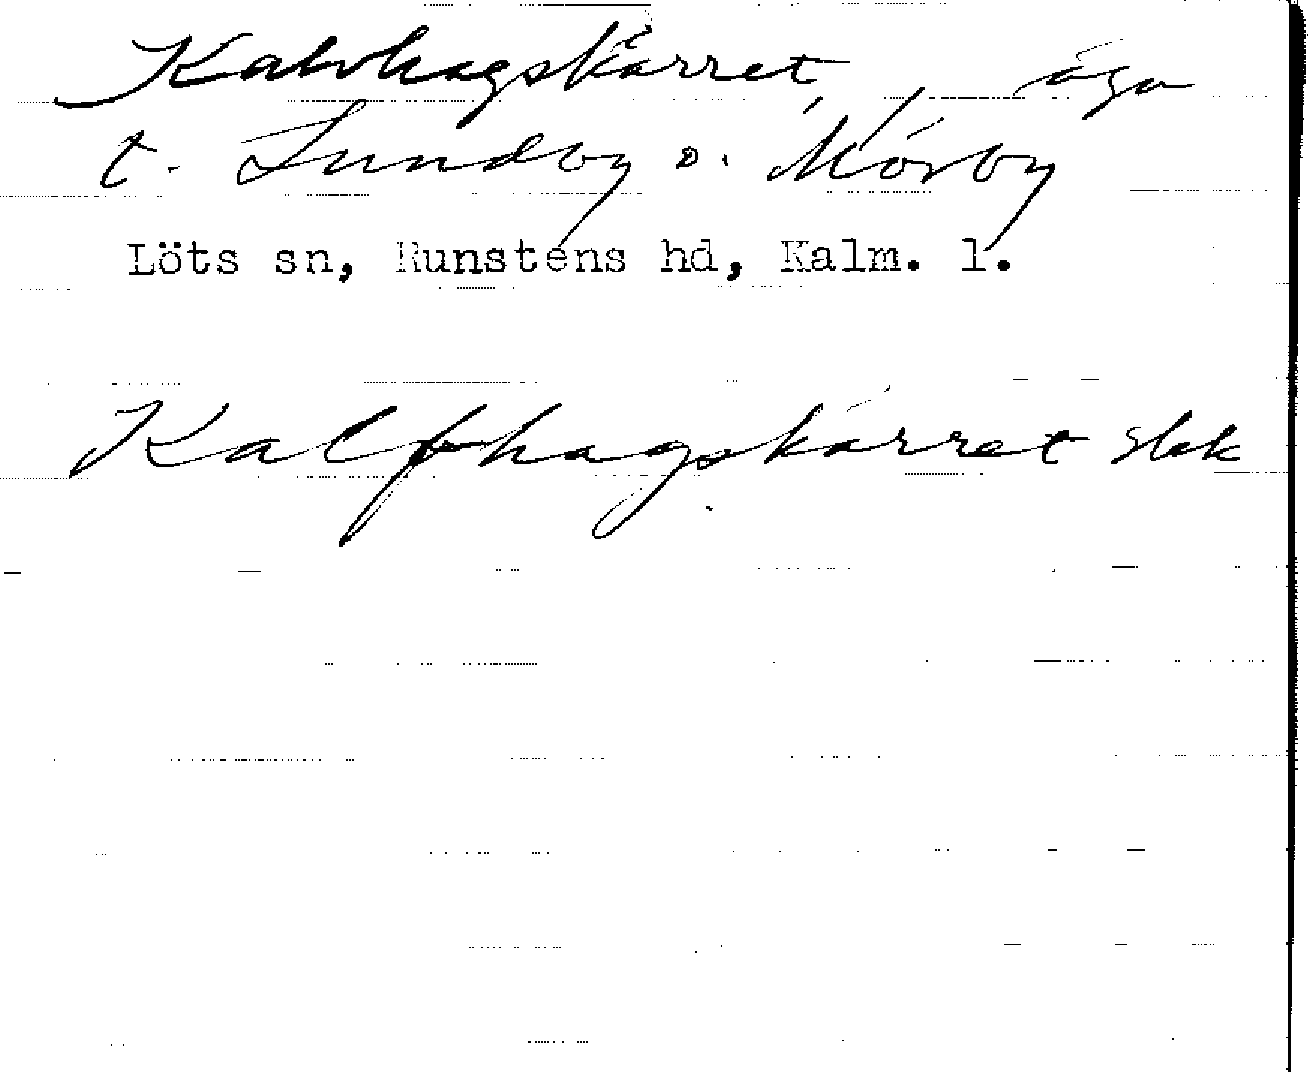 Kalvhagskärret, äga
t. Lundby o. Mörby
Löts sn, Runstens hd, Kalm. l.
Kalfhagskärret Ebk